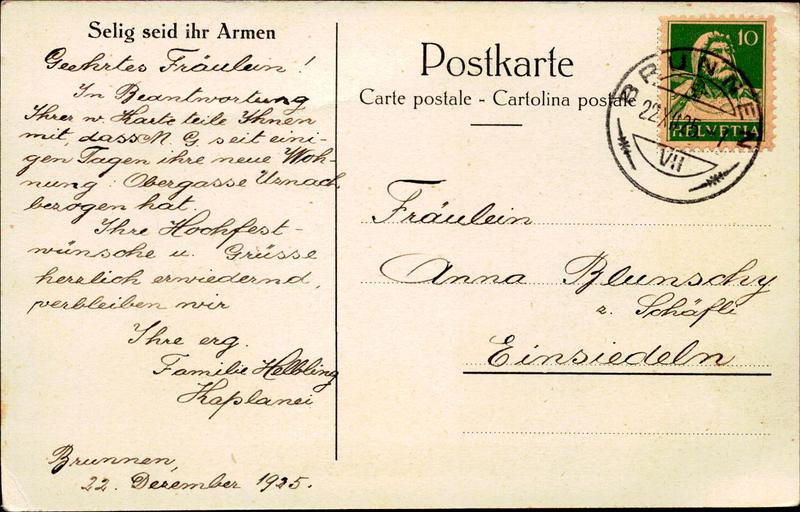 Selig seid ihr Armen
Geehrtes Fräulein!
In Beantwortung
Ihrer w. Karte teile Ihnen
mit, dass M. G. seit eini-
gen Tagen ihre neue Woh-
nung: Obergasse Uznach
bezogen hat.
Ihre Hochfest-
wünsche u. Grüsse
herzlich erwiedernd,
verbleiben wir
Ihre erg.
Familie Helbling
Kaplanei
Brunnen,
22. Dezember 1925.
Postkarte
Carte postale - Cartolina postale
10
HELVETIA
BRUNNEN
VII
Fräulein
Anna Blunschy
z. Schäfli
Einsiedeln